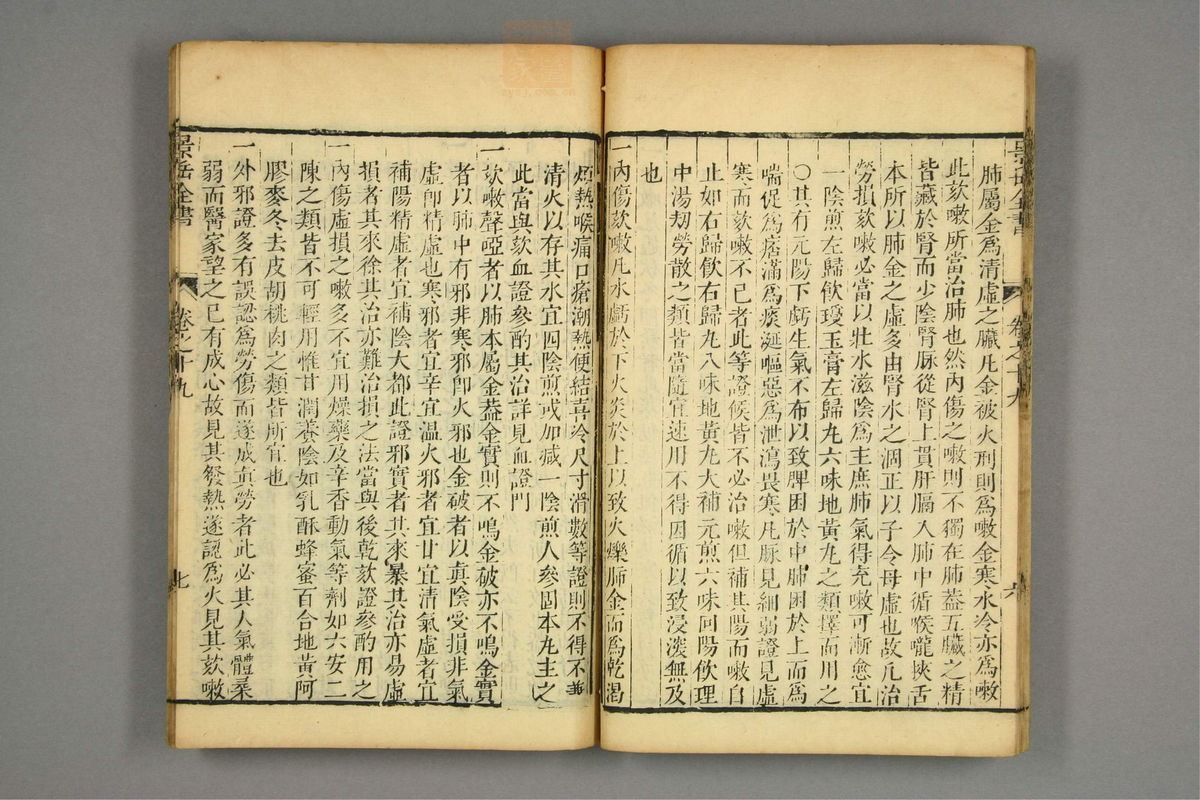 景岳全書
卷之十九
六
肺屬金爲清虛之臟凡金被火刑則爲嗽金寒水冷亦爲嗽
此欬嗽所當治肺也然內傷之嗽則不獨在肺葢五臟之精
皆藏於腎而少陰腎脉從腎上貫肝膈入肺中循喉嚨挾舌
本所以肺金之虛多由腎水之涸正以子令母虛也故凡治
勞損欬嗽必當以壯水滋陰爲主庶肺氣得充嗽可漸愈宜
一陰煎左歸飲瓊玉膏左歸丸六味地黃丸之類擇而用之
○其有元陽下虧生氣不布以致脾困於中肺困於上而爲
喘促爲痞滿爲痰涎嘔惡爲泄瀉畏寒凡脉見細弱證見虛
寒而欬嗽不已者此等證候皆不必治嗽但補其陽而嗽自
止如右歸飲右歸丸八味地黃丸大補元煎六味回陽飲理
中湯刼勞散之類皆當隨宜速用不得因循以致浸淡無及
也
一內傷欬嗽凡水虧於下火炎於上以致火爍肺金而爲乾渴
煩熱喉痛口瘡潮熱便結喜冷尺寸滑數等證則不得不兼
清火以存其水宜四陰煎或加减一陰煎人參固本丸主之
此當與欬血證參酌其治詳見血證門
一欬嗽聲啞者以肺本屬金葢金實則不鳴金破亦不鳴金實
者以肺中有邪非寒邪卽火邪也金破者以眞陰受損非氣
虛卽精虛也寒邪者宜辛宜温火邪者宜甘宜清氣虛者宜
補陽精虛者宜補陰大都此證邪實者其來暴其治亦易虛
損者其來徐其治亦難治損之法當與後乾欬證參酌用之
一內傷虛損之嗽多不宜用燥藥及辛香動氣等劑如六安二
陳之類皆不可輕用惟甘潤養陰如乳酥蜂蜜百合地黃阿
膠麥冬去皮胡桃肉之類皆所宜也
一外邪證多有誤認爲勞傷而遂成眞勞者此必其人氣體柔
弱而醫家望之已有成心故見其發熱遂認爲火見其欬嗽
景岳全書
卷之十九
七